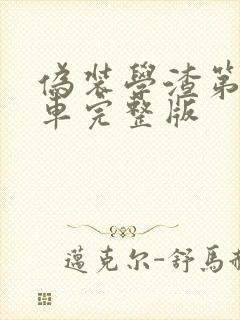 偽裝學渣第
車完整版
邁克尔-舒馬赫